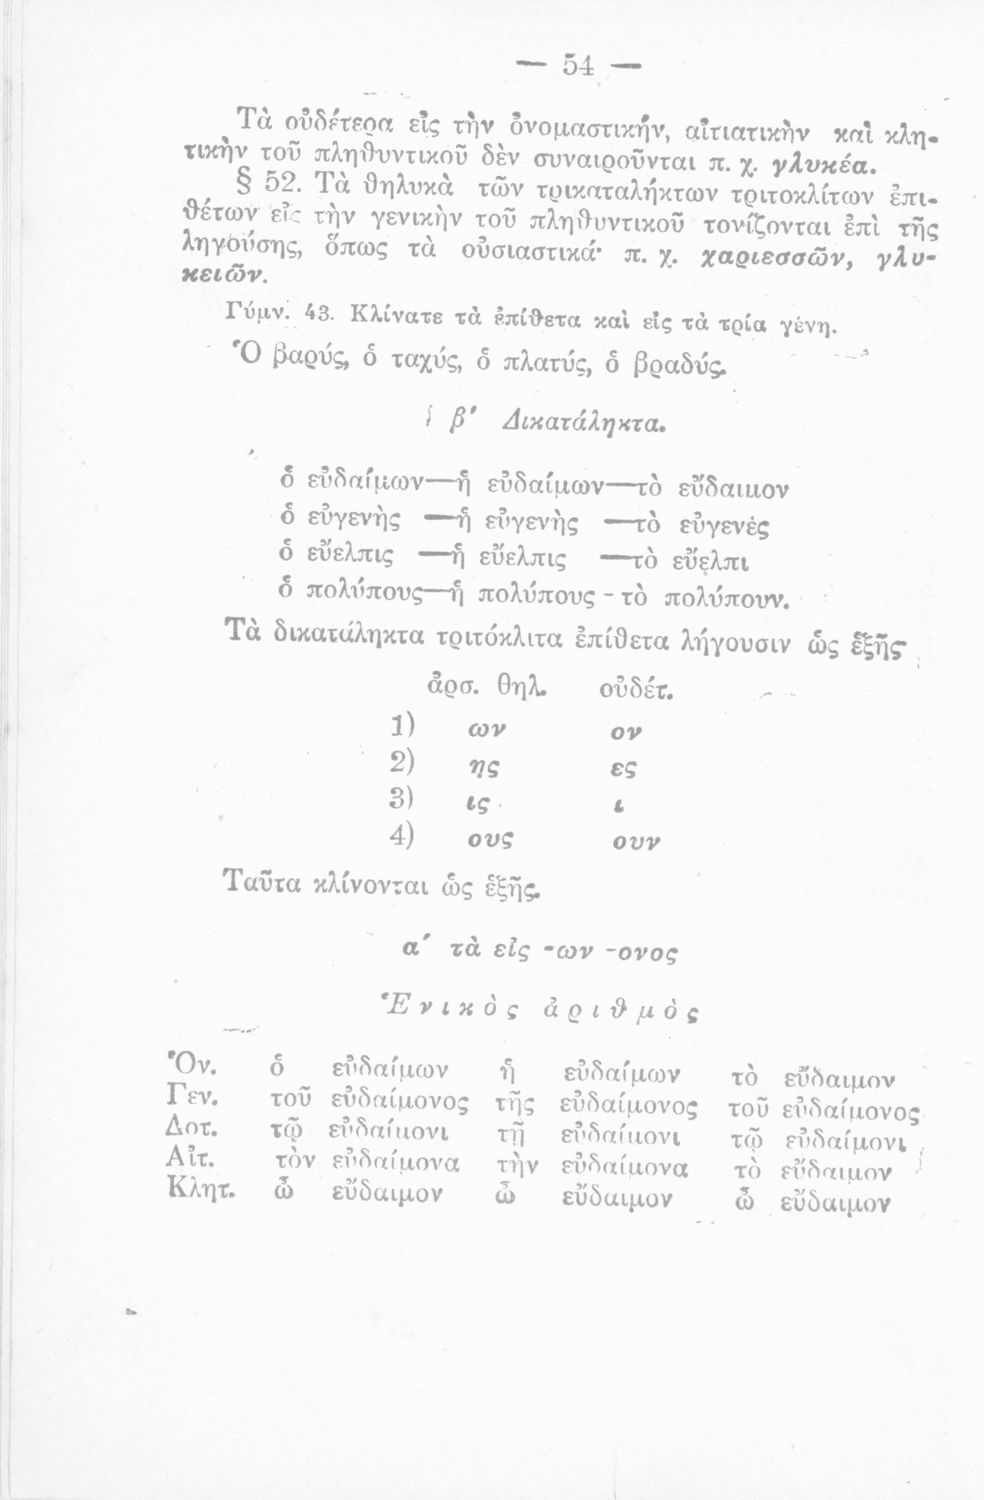 — 54 —
Τὰ οὐδέτερα εἰς τὴν ὀνομαστικήν, αἰτιατικὴν καὶ κλη-
τικὴν τοῦ πληθυντικοῦ δὲν συναιροῦνται π. χ. γλυκέα.
§ 52. Τὰ θηλυκὰ τῶν τρικαταλήκτων τριτοκλίτων ἐπι-
θέτων εἰς τὴν γενικὴν τοῦ πληθυντικοῦ τονίζονται ἐπὶ τῆς
ληγούσης, ὅπως τὰ οὐσιαστικά· π. χ. χαριεσσῶν, γλυ-
κειῶν.
Γύμν. 43. Κλίνατε τὰ ἐπίθετα καὶ εἰς τὰ τρία γένη.
Ὁ βαρύς, ὁ ταχύς, ὁ πλατύς, ὁ βραδύς.
β' Δικατάληκτα.
ὁ εὐδαίμων—ἡ εὐδαίμων—τὸ εὔδαιμον
ὁ εὐγενὴς —ἡ εὐγενὴς —τὸ εὐγενές
ὁ εὔελπις —ἡ εὔελπις —τὸ εὔελπι
ὁ πολύπους—ἡ πολύπους - τὸ πολύπουν.
Τὰ δικατάληκτα τριτόκλιτα ἐπίθετα λήγουσιν ὡς ἑξῆς·
ἀρσ. θηλ. οὐδέτ.
1) ων ον
2) ης ες
3) ις ι
4) ους ουν
Ταῦτα κλίνονται ὡς ἑξῆς.
α' τὰ εἰς -ων -ονος
Ἑνικὸς ἀριθμὸς
Ὀν. ὁ εὐδαίμων ἡ εὐδαίμων τὸ εὔδαιμον
Γεν. τοῦ εὐδαίμονος τῆς εὐδαίμονος τοῦ εὐδαίμονος
Δοτ. τῷ εὐδαίμονι τῇ εὐδαίμονι τῷ εὐδαίμονι
Αἰτ. τὸν εὐδαίμονα τὴν εὐδαίμονα τὸ εὔδαιμον
Κλητ. ὦ εὔδαιμον ὦ εὔδαιμον ὦ εὔδαιμον